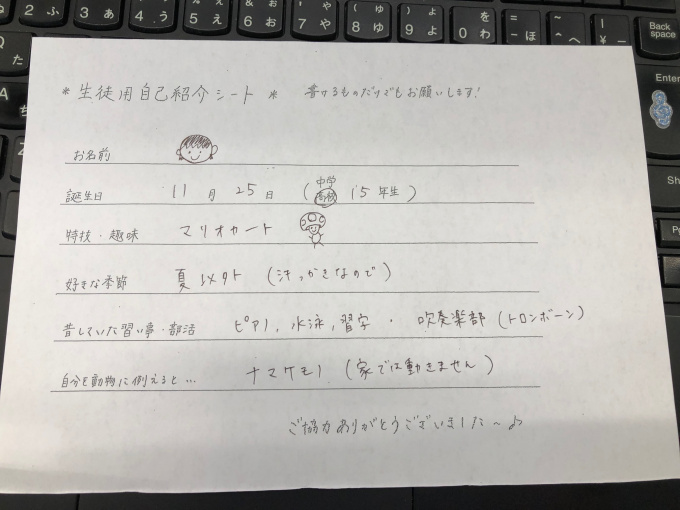 * 生徒用自己紹介シート * 書けるものだけでもお願いします!
お名前
誕生日 11月25日 (中学 高校 15年生)
特技・趣味 マリオカート
好きな季節 夏以外 (汗っかきなので)
昔していた習い事・部活 ピアノ, 水泳, 習字 ・ 吹奏楽部 (トロンボーン)
自分を動物に例えると… ナマケモノ (家では動きません)
ご協力ありがとうございました〜♪
Back space
Enter